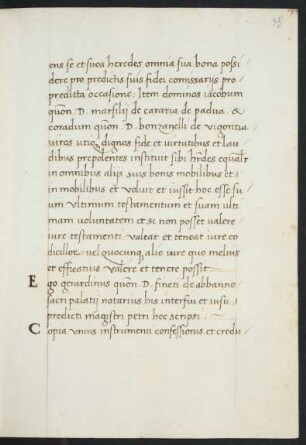 ens se et suos heredes omnia sua bona possi/
dere pro predictis suis fidei comissarijs pro
predicta occasione: Item dominos iacobum
quōn . D . marsilij de cararia de padua . &
coradum quōn . D . bonzanelli de vigontia
uiros utiq; dignos fide et uirtutibus et lau/
dibus prepolentes instituit sibi hr̄des equalr̄
in omnibus alijs suis bonis mobilibus et
in mobilibus et voluit et iussit hoc esse su/
um vltimum testamentum et suam ulti
mam voluntatem et si non posset valere
iure testamenti valeat et teneat iure co
dicillor̄ uel quocunq, alio iure quo melius
et efficatius valere et tenere possit
Ego gerardinus quōn . D . fineti de abbanno
sacri palatij notarius his interfui et iusu
predicti magistri petri hoc scripsi
Copia vnius instrumenti confessionis et credu/